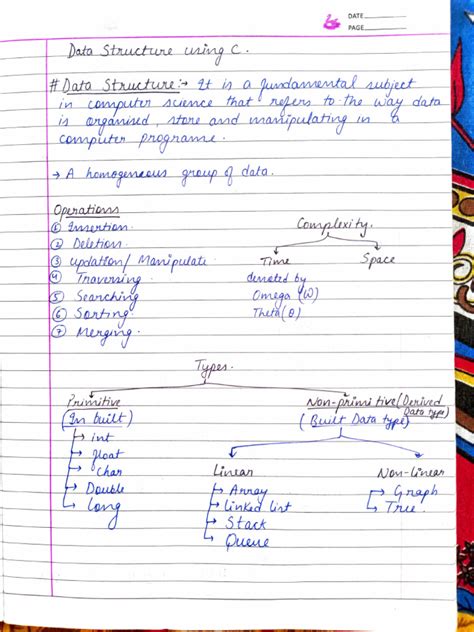 DATE
PAGE
Data Structure using C.
# Data Structure:→ It is a fundamental subject
in computer science that refers to the way data
is organised, store and manipulating in a
computer programe.
→ A homogeneous group of data.
Operations
① Insertion.
② Deletion.
③ Updation/Manipulate
④ Traversing.
⑤ Searching
⑥ Sorting.
⑦ Merging.
Complexity.
Time Space
denoted by
Omega (W)
Theta (θ)
Types.
Primitive
(In built)
int
float
Char
Double
Long
Non-primitive (Derived
Data type)
(Built Data type)
Linear Non-linear
Array
Linked list
Stack
Queue
Graph
Tree.